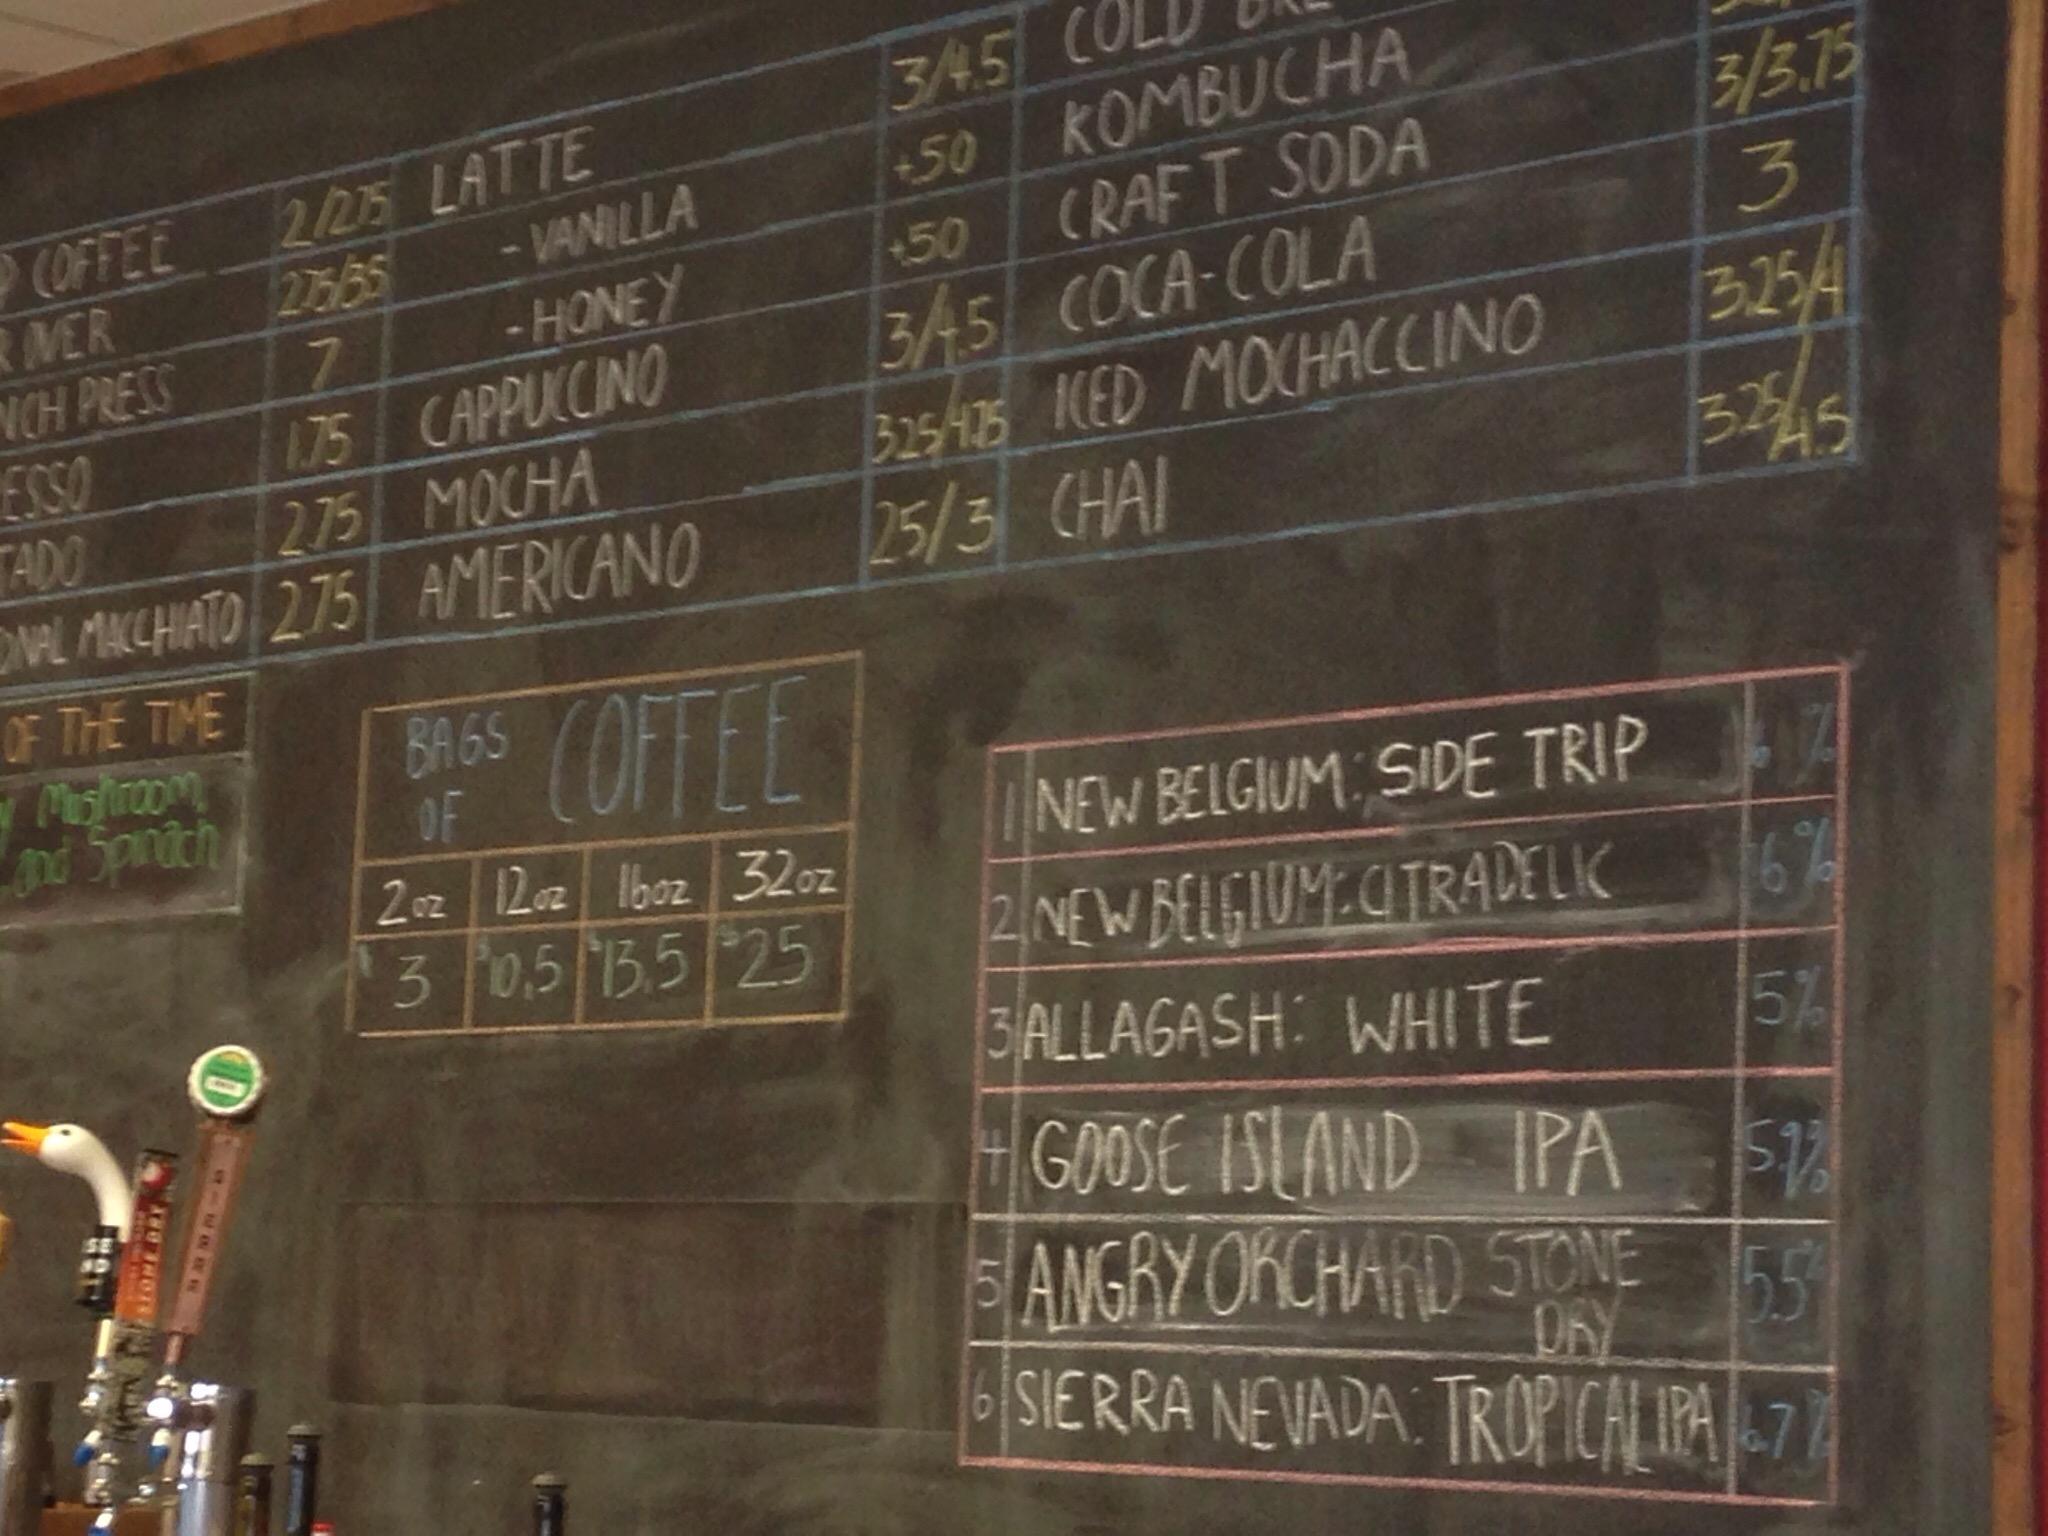 COFFEE 2/2.75 LATTE 3/4.5 COLD
OVER 2.75/3.5 -VANILLA +.50 KOMBUCHA 3/3.75
PRESS 7 -HONEY +.50 CRAFT SODA 3
1.75 CAPPUCCINO 3/4.5 COCA-COLA
2.75 MOCHA 3.25/4.75 ICED MOCHACCINO 3.25/4
MACCHIATO 2.75 AMERICANO 25/3 CHAI 3.25/4.5
OF THE TIME
Mushroom
and Spinach
BAGS OF COFFEE
2oz 12oz 16oz 32oz
$3 $10.5 $13.5 $25
1 NEW BELGIUM: SIDE TRIP %
2 NEW BELGIUM: CITRADELIC 6%
3 ALLAGASH: WHITE 5%
4 GOOSE ISLAND IPA 5.9%
5 ANGRY ORCHARD STONE DRY 5.5%
6 SIERRA NEVADA: TROPICAL IPA 6.7%
STONE DRY